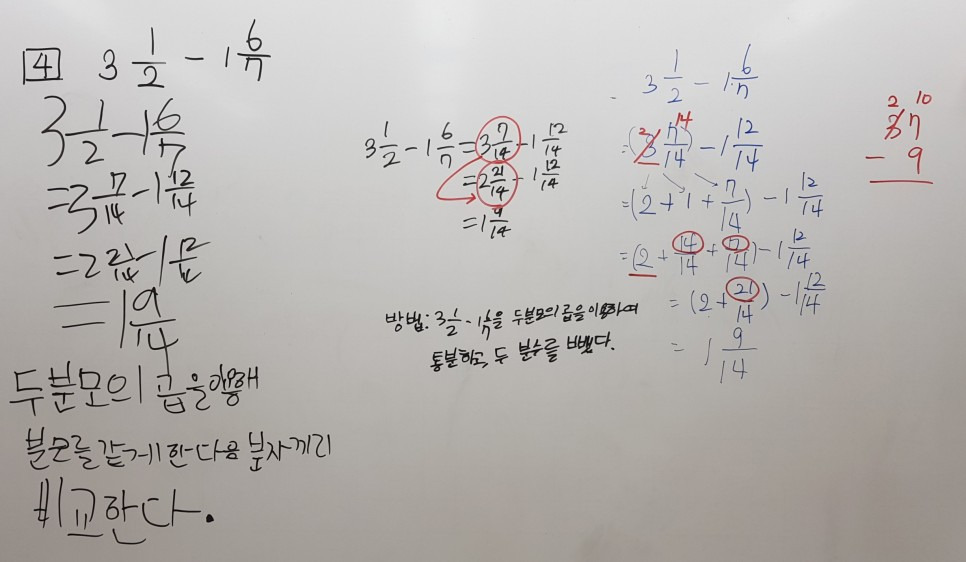 4 3 1/2 - 1 6/7
3 1/2 - 1 6/7
= 3 7/14 - 1 12/14
= 2 21/14 - 1 12/14
= 1 9/14
두분모의 곱을 이용해
분모를 같게 한다음 분자끼리
비교한다.
3 1/2 - 1 6/7 = 3 7/14 - 1 12/14
= 2 21/14 - 1 12/14
= 1 9/14
방법: 3 1/2 - 1 6/7을 두분모의 곱을 이용하여
통분하고, 두 분수를 뺐다.
3 1/2 - 1 6/7
2 14
= (3 7/14) - 1 12/14
= (2 + 1 + 7/14) - 1 12/14
= (2 + 14/14 + 7/14) - 1 12/14
= (2 + 21/14) - 1 12/14
= 1 9/14
2 10
37
- 9